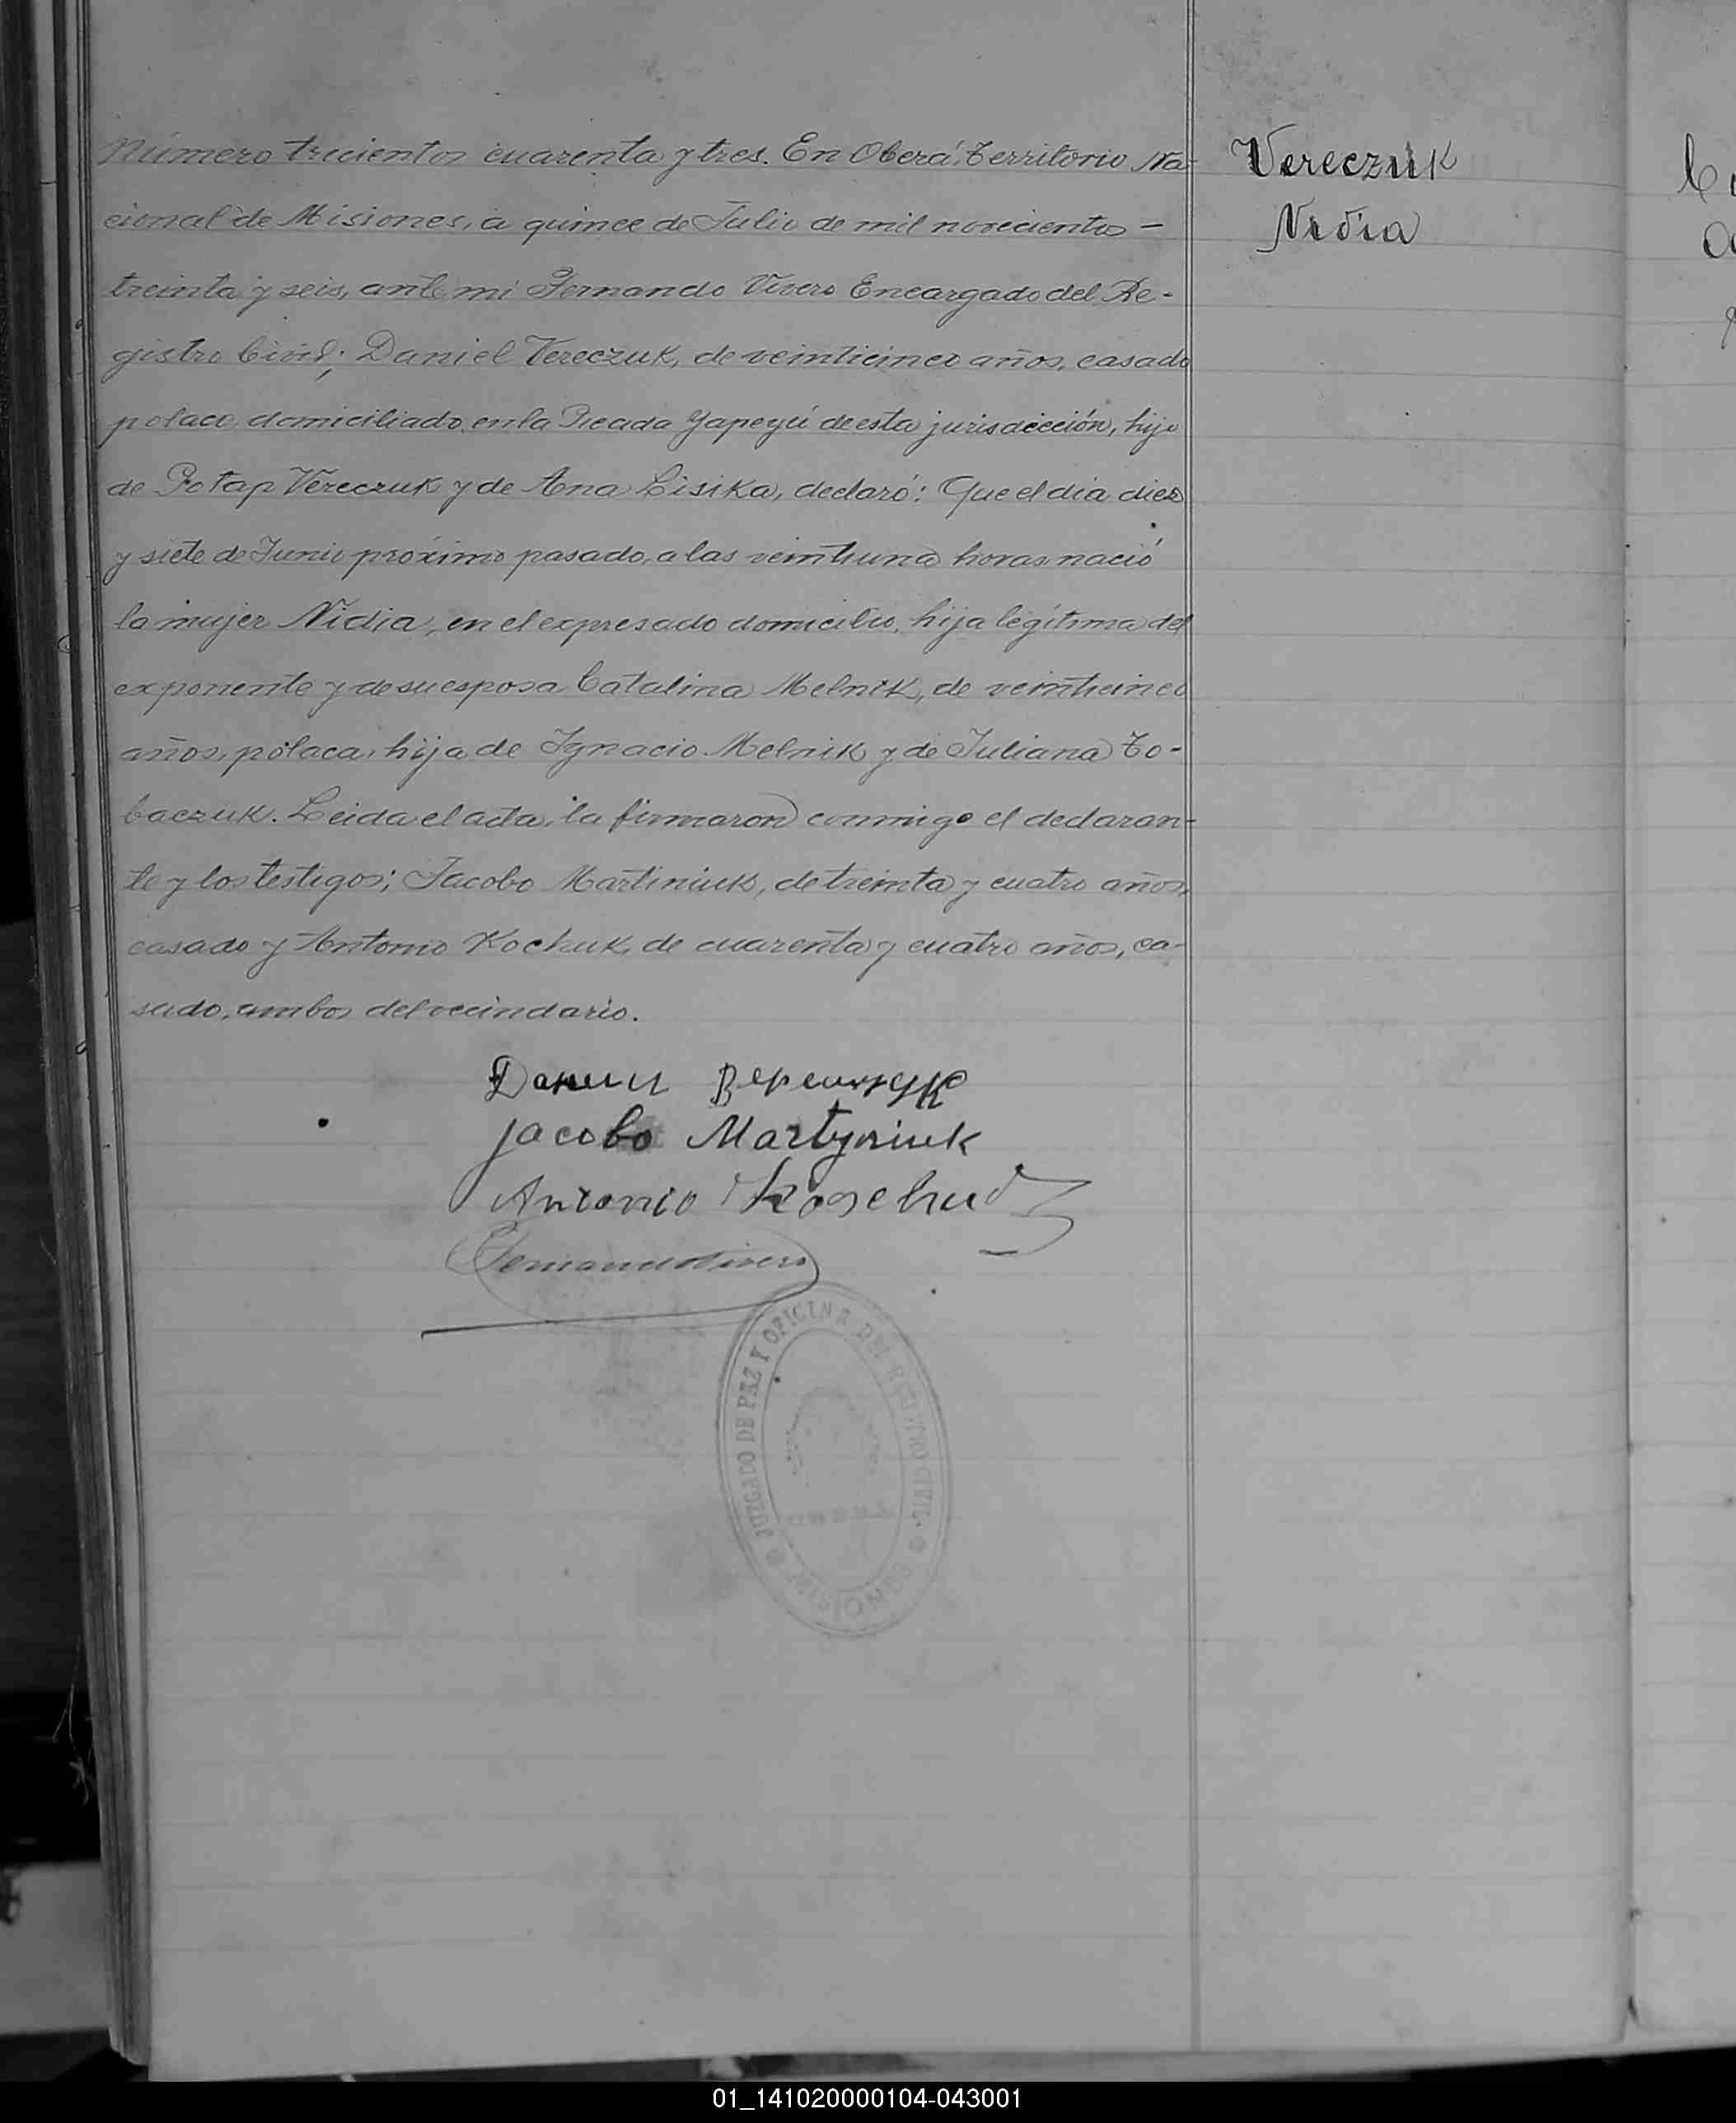 Número trecientos cuarenta y tres. En Oberá, Territorio Na-
cional de Misiones, a quince de Julio de mil novecientos —
treinta y seis, ante mi Fernando Vivero Encargado del Re-
gistro Civil; Daniel Vereczuk, de veinticinco años, casado
polaco domiciliado en la Picada Yapeyú de esta jurisdicción, hijo
de Potap Vereczuk y de Ana Lisika, declaró: Que el dia diez
y siete de Junio próximo pasado, a las veintiuna horas nació
la mujer Nidia, en el expresado domicilio, hija legítima del
exponente y de su esposa Catalina Melnik, de veinticinco
años, polaca, hija de Ignacio Melnik y de Juliana To-
baczuk. Leida el acta, la firmaron conmigo el declaran-
te y los testigos; Jacobo Martiniuk, de treinta y cuatro años,
casado y Antonio Kochuk, de cuarenta y cuatro años, ca-
sado, ambos del vecindario.
Vereczuk
Nidia
Jacobo Martyniuk
Antonio
JUZGADO DE PAZ Y OFICINA DEL REGISTRO CIVIL
MISIONES
01_141020000104-043001